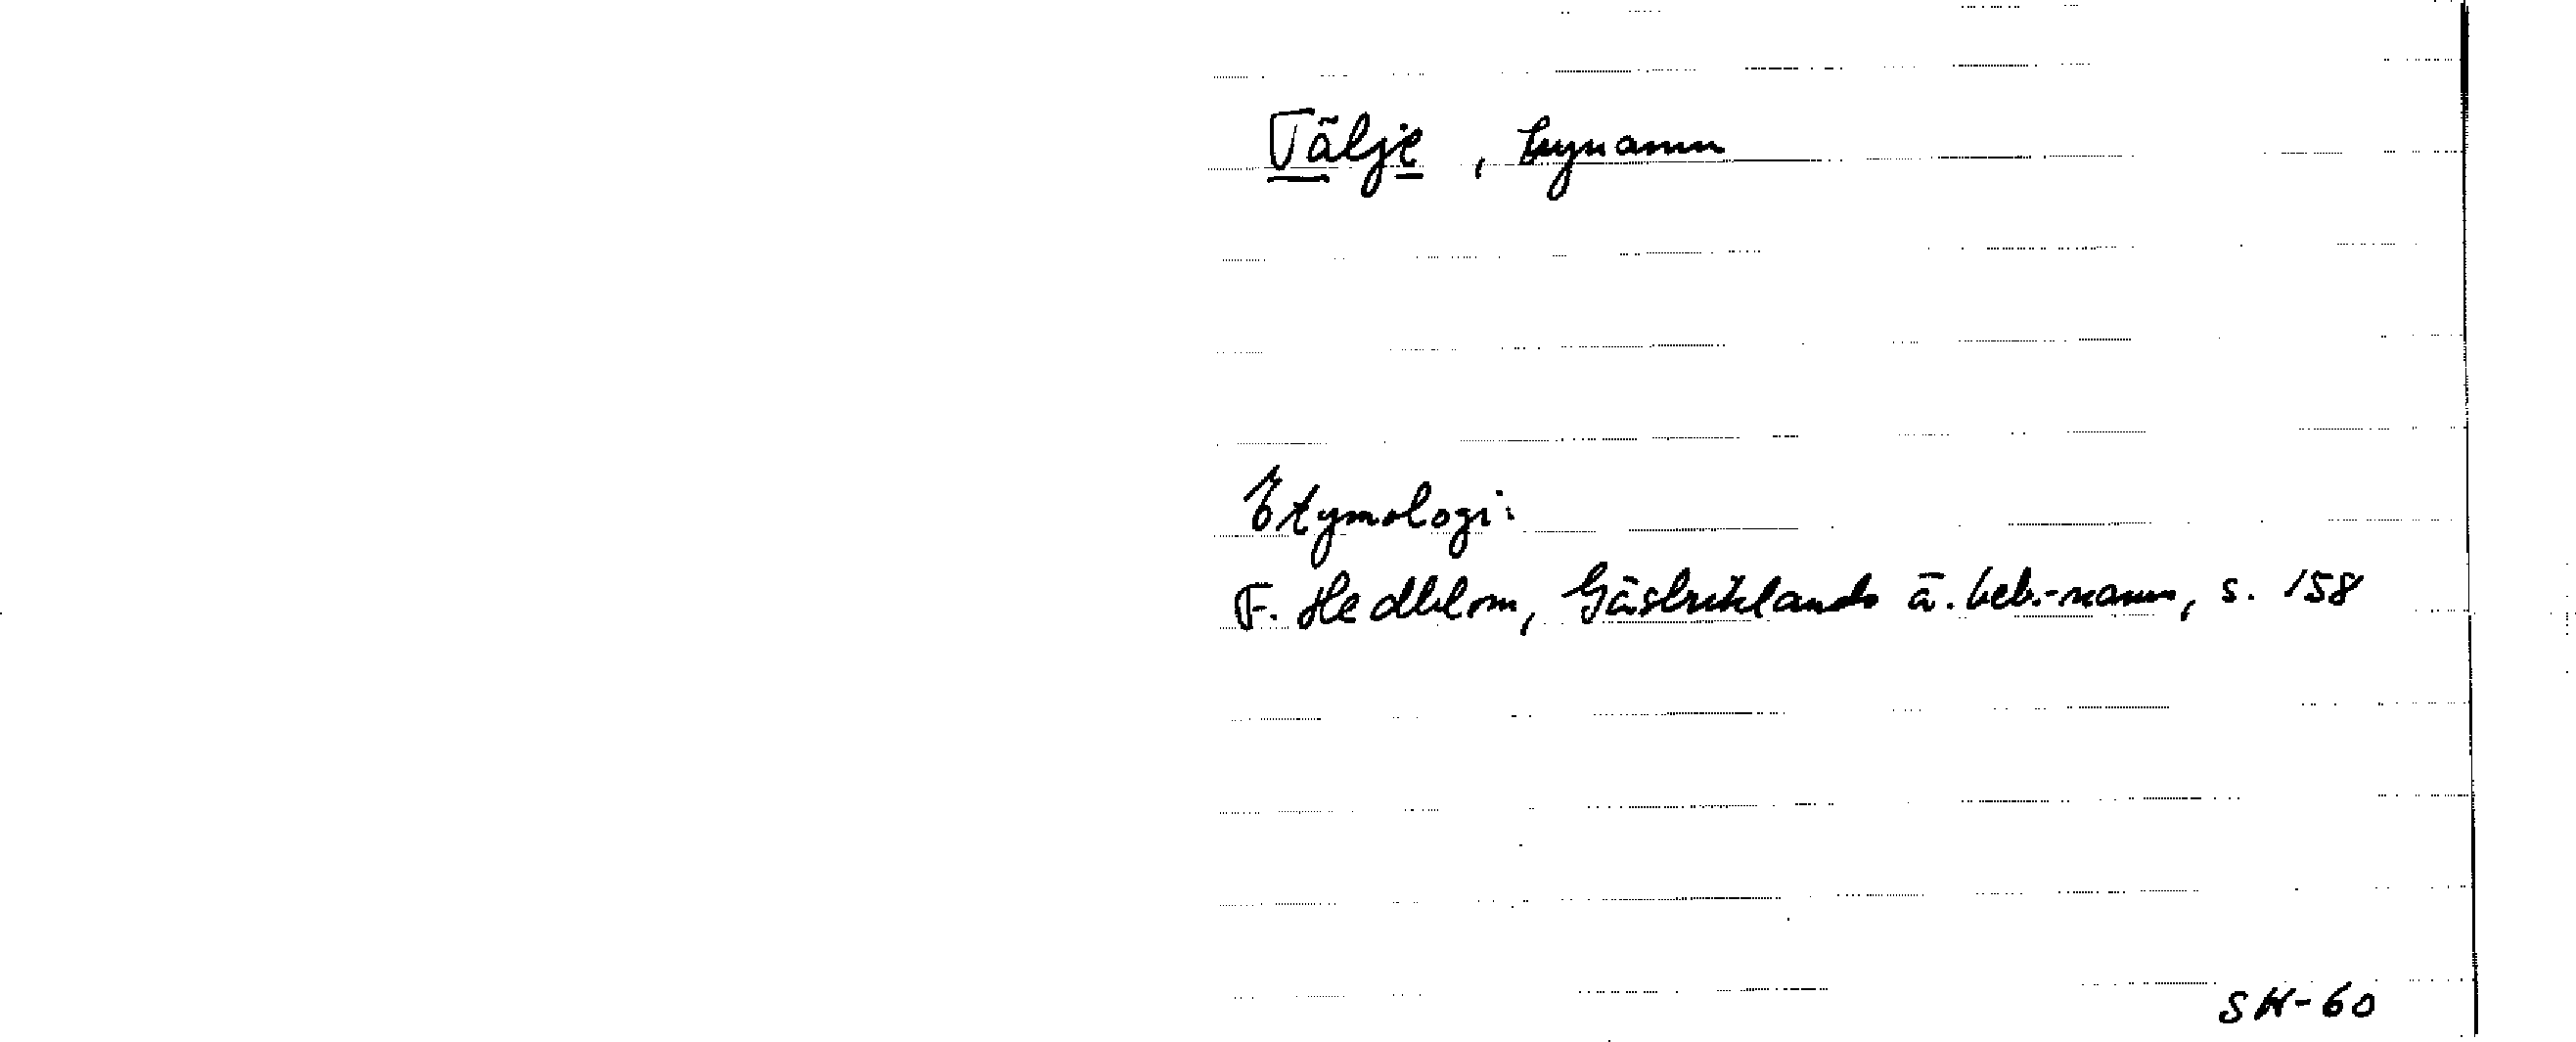 Tälje, bynamn
Etymologi:
F. Hedblom, Gästriklands ä. beb.-namn, s. 158
SH-60